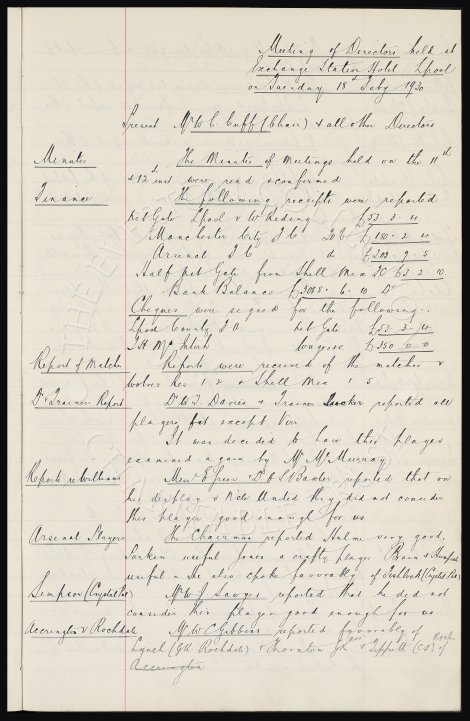 Meeting of Directors held at
Exchange Station Hotel Lpool
on Tuesday 18th Feby 1930
Present Mr W C Cuff (Chair) & all other Directors
Minutes The Minutes of Meetings held on the 11th
& 12th inst were read & confirmed
Finance The following receipts were reported
Net Gate Lpool v W Riding £53 . 3 . 11
Manchester City F C do £180 . 2 . 11
Arsenal F C do £203 . 9 . 5
Half Net Gate from Shell Mex FC £3 . 2 . 10
Bank Balance £3088 . 6 . 10 Dr
Cheques were signed for the following:-
Lpool County F A net Gate £53 . 3 . 11
T H McIntosh wages £350 . 0 . 0
Report of Matches Reports were received of the matches v
Wolves Res 1 . 2 & Shell Mex 1 . 5
Dr & Trainers Report Dr W J Davies & Trainer reported all
players fit except
It was decided to have this player
examined again by Mr McMurray
Reports re Williams Messrs E Green & Dr C S Baxter reported that on
his display v Notts United they did not consider
this player good enough for us
Arsenal Players The Chairman reported Hulme very good,
Parkin useful Jones a crafty player & Humpish
useful - he also spoke favorably of (Crystal Pal)
Simpson (Crystal Pal) Mr W J Sawyer reported that he did not
consider this player good enough for us.
Accrington v Rochdale Mr W C Gibbins reported favorably of
Lynch (GK Rochdale) & Thornton & Tippett (CO) of Roch
Accrington